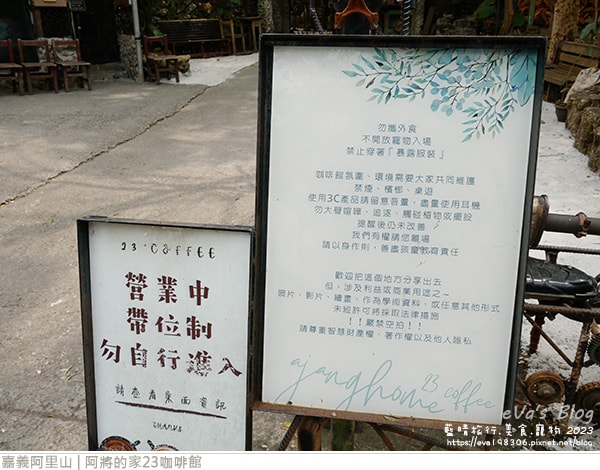 勿攜外食
不開放寵物入場
禁止穿著『暴露服裝』
咖啡館氛圍、環境需要大家共同維護
禁煙、檳榔、桌遊
使用3C產品請留意音量，盡量使用耳機
勿大聲喧嘩、追逐、觸碰植物或擺設
提醒後仍未改善
我們有權請您離場
請以身作則，善盡孩童教育責任
歡迎把這個地方分享出去
但，涉及利益或商業用途之~
照片、影片、繪畫、作為學術資料，或任意其他形式
未經許可將採取法律措施
!!嚴禁空拍!!
請尊重智慧財產權、著作權以及他人隱私
ajanghome 23 coffee
23.COFFEE
營業中
帶位制
勿自行進入
請查看桌面資訊
THANKS
eVa's Blog
藍晴旅行.美食.寵物 2019
https://eva198306.pixnet.net/blog
嘉義阿里山 | 阿將的家23咖啡館